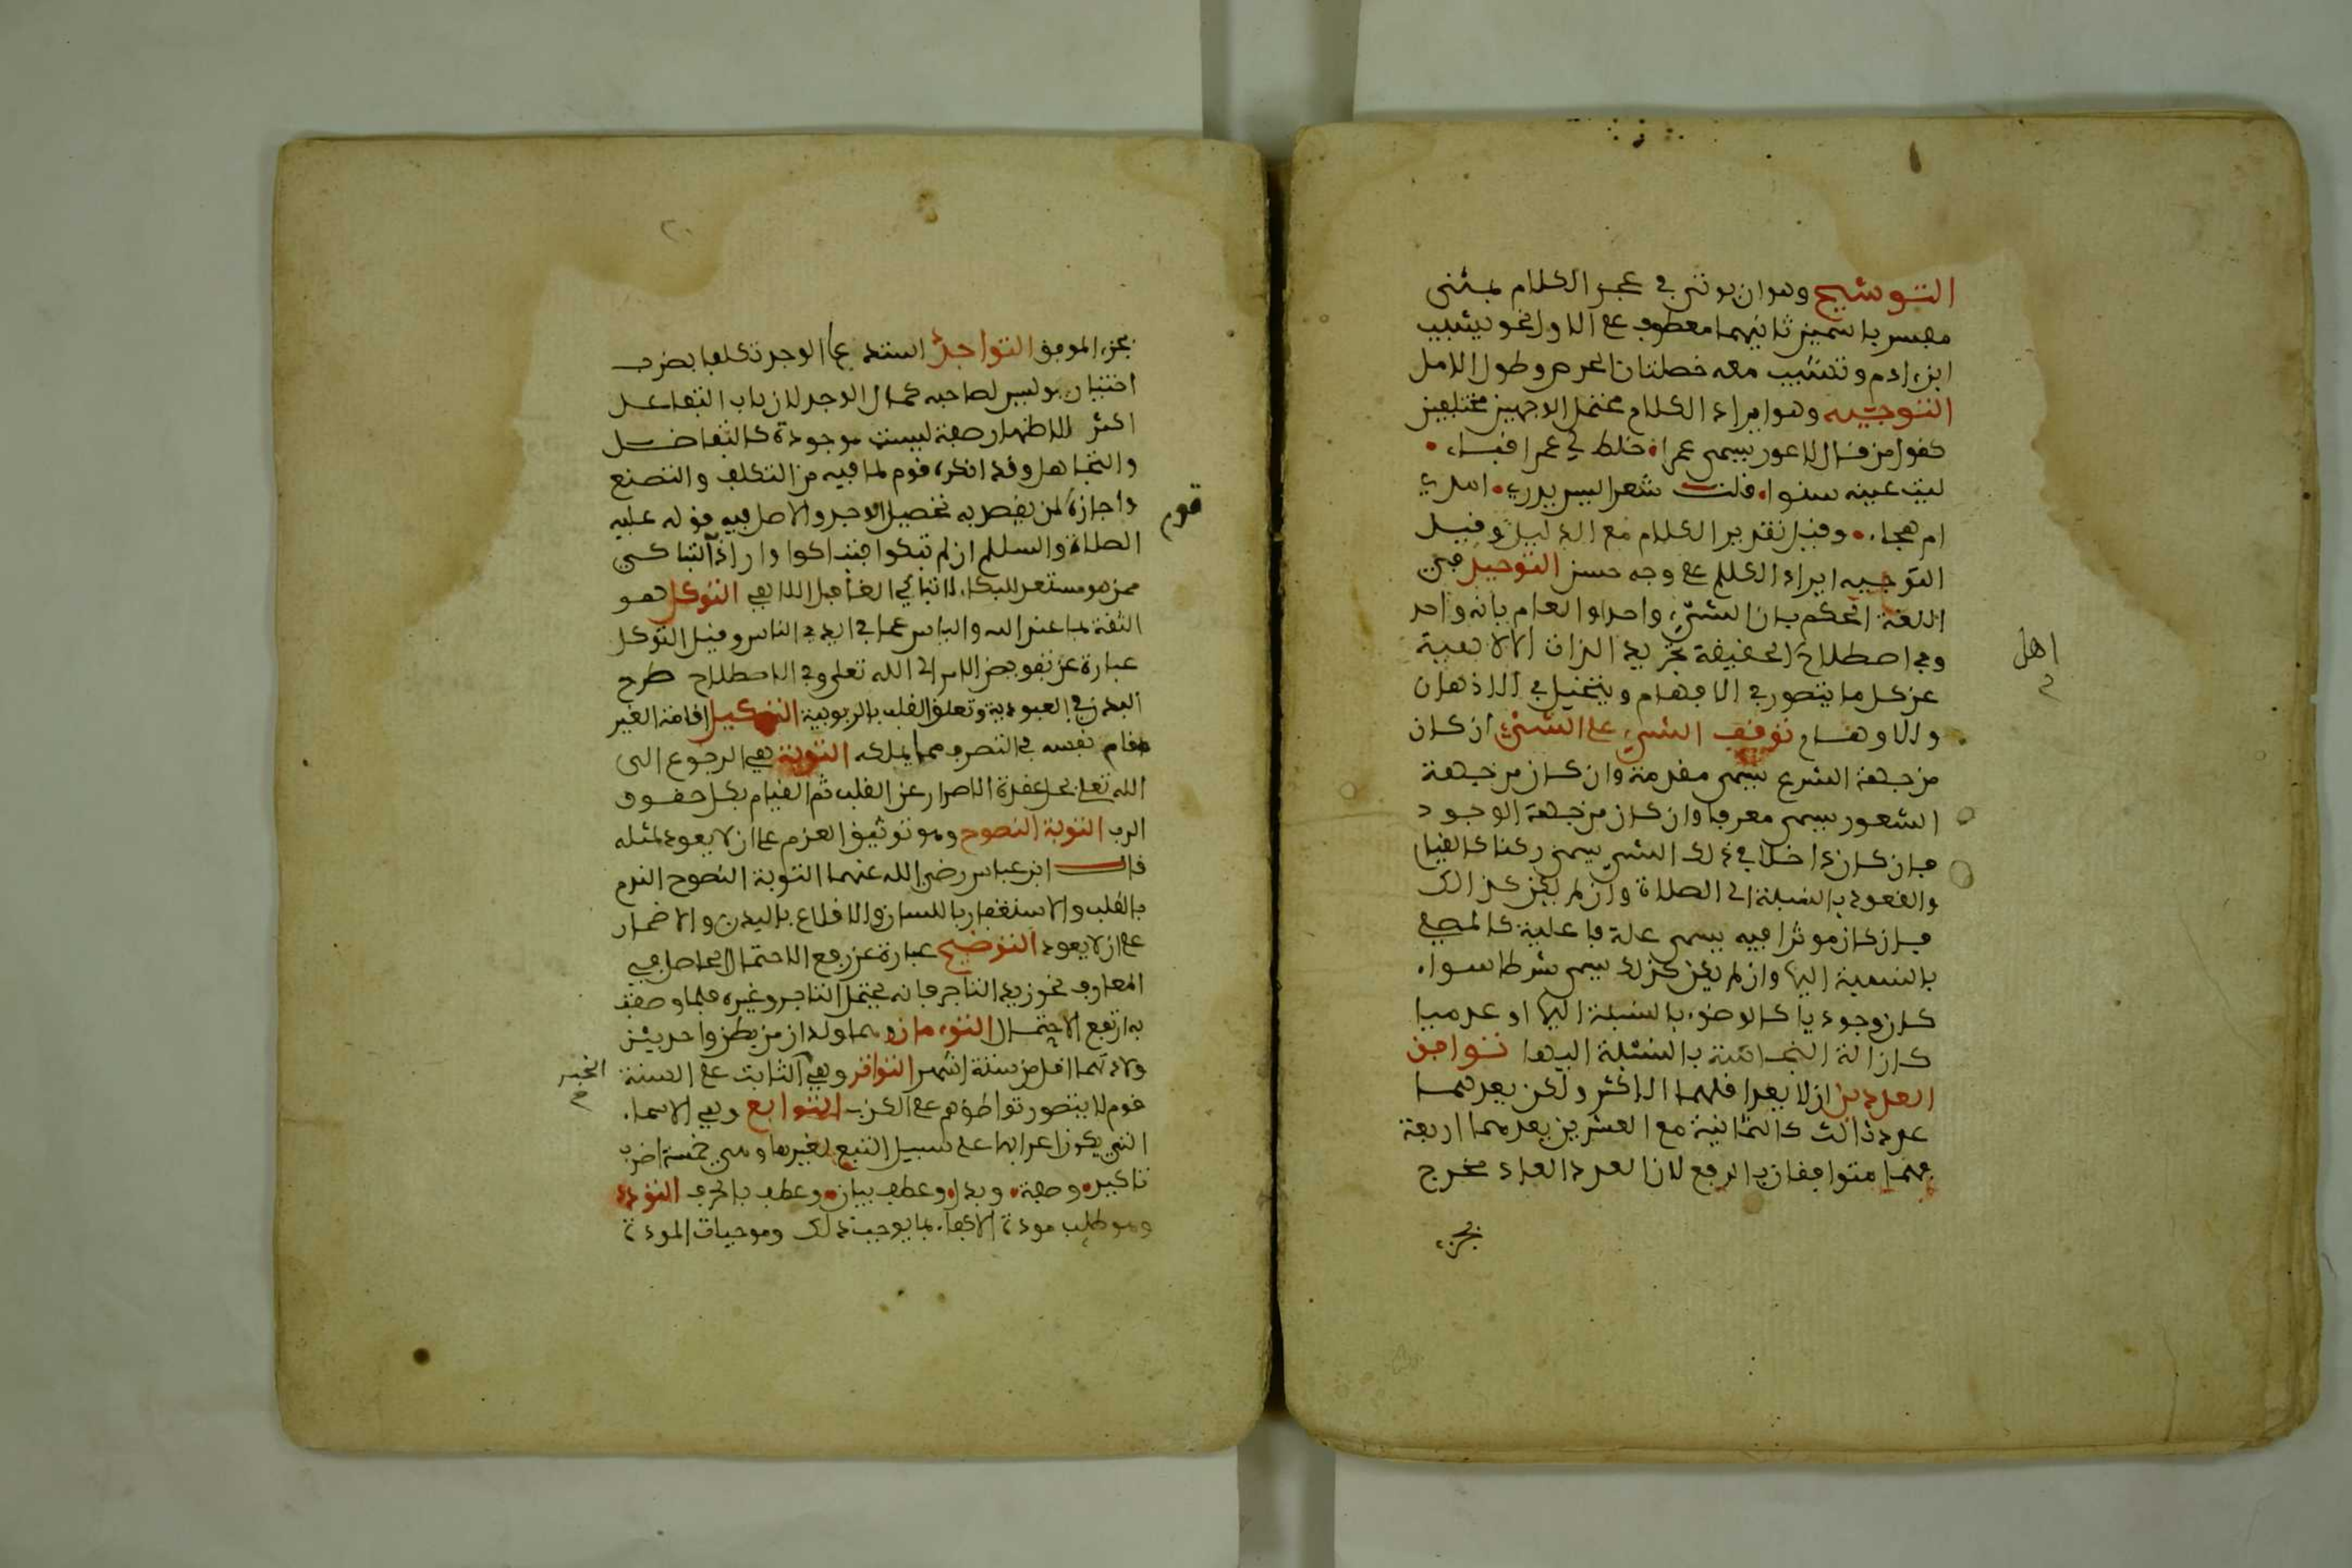 التوشيح وهو ان يوتى في عجز الكلام بمثنى
مفسر باسمين ثانيهما معطوف على الاول نحو يشيب
ابن ادم وتشيب معه خصلتان الحرص وطول الامل
التوجيه وهو ايراد الكلام محتمل الوجهين مختلفين
كقول من قال لاعور يسمى عمرا خاط لي عمرا قباء
ليت عينيه سواء قلت شعرا ليس يدرى امديح
ام هجاء وقيل تقرير الكلام مع الدليل وقيل
التوجيه ايراد الكلام على وجه حسن التوحيد في
اللغة الحكم بان الشيء واحد او العلم بانه واحد
وفي اصطلاح الحقيقة تجريد الذات الالاهية
اهل
عن كل ما يتصور في الافهام ويتخيل في الاذهان
والاوهام توقف الشيء على الشيء ان كان
من جهة الشرع يسمى مقدمة وان كان من جهة
الشعور يسمى معرفا وان كان من جهة الوجود
فان كان داخلا في ذلك الشيء يسمى ركنا كالقيام
والقعود بالنسبة الى الصلاة وان لم يكن كذالك
فان كان موثرا فيه يسمى علة فاعلية كالمصلي
بالنسبة اليها وان لم يكن كذلك يسمى شرطا سواء
كان وجوديا كالوضوء بالنسبة اليها او عدميا
كازالة النجاسة بالنسبة اليها توافق
العددين ان لا يعد اقلهما الاكثر ولكن يعدهما
عدد ثالث كالثمانية مع العشرين يعدهما اربعة
فهما متوافقان بالربع لان العدد العاد مخرج
بجزء
بجزء الموفق التواجد استدعا الوجد تكلفا بضرب
اختيار وليس لصاحبه كمال الوجد لان باب التفاعل
اكثر لاظهار صفة ليست موجودة كالتغافل
والتجاهل وقد انكره قوم لما فيه من التكلف والتصنع
واجازه لمن يقصد به تحصيل الوجد والاصل فيه قوله عليه
قوم
الصلاة والسلام ان لم تبكوا فتباكوا واراد التباكي
ممن هو مستعد للبكاء لا تباكي الغافل اللاهي التوكل هو
الثقة بما عند الله والياس عما في ايدي الناس وقيل التوكل
عبارة عن تفويض الامر الى الله تعلى وفي الاصطلاح طرح
البدن في العبودية وتعلق القلب بالربوبية التوكيل اقامة الغير
مقام نفسه في التصرف مما يملكه التوبة هي الرجوع الى
الله تعلى بحل عقدة الاصرار عن القلب ثم القيام بكل حقوق
الرب التوبة النصوح وهو توثيق العزم على ان لا يعود لمثله
قال ابن عباس رضي الله عنهما التوبة النصوح الندم
بالقلب والاستغفار باللسان والاقلاع باليدن والاضمار
على ان لا يعود التوضيح عبارة عن رفع الاحتمال الحاصل في
المعارف نحو زيد التاجر فانه يحتمل التاجر وغيره فلما وصفته
به ارتفع الاحتمال التوءمان وهما ولدان من بطن واحد بين
ولادتهما اقل من ستة اشهر التواتر وهي الثابت على السنة
الخبر
قوم لا يتصور تواطؤهم على الكذب التوابع وهي الاسماء
التي يكون اعرابها على سبيل التبع لغيرها وهي خمسة اضرب
تاكيد وصفة وبدل وعطف بيان وعطف بالحرف التودد
وهو طلب مودة الاكفاء بما يوجب ذلك وموجبات المودة